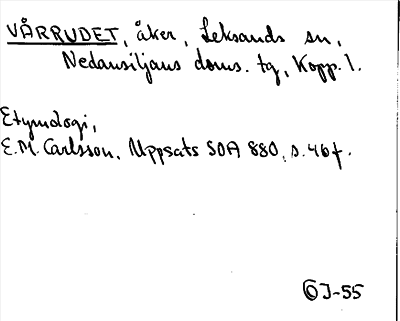 VÅRRUDET, åker, Leksands sn,
Nedansiljans doms. tg, Kopp. l.
Etymologi,
E.M. Carlsson, Uppsats SOA 880, s. 46f.
ÖJ-55